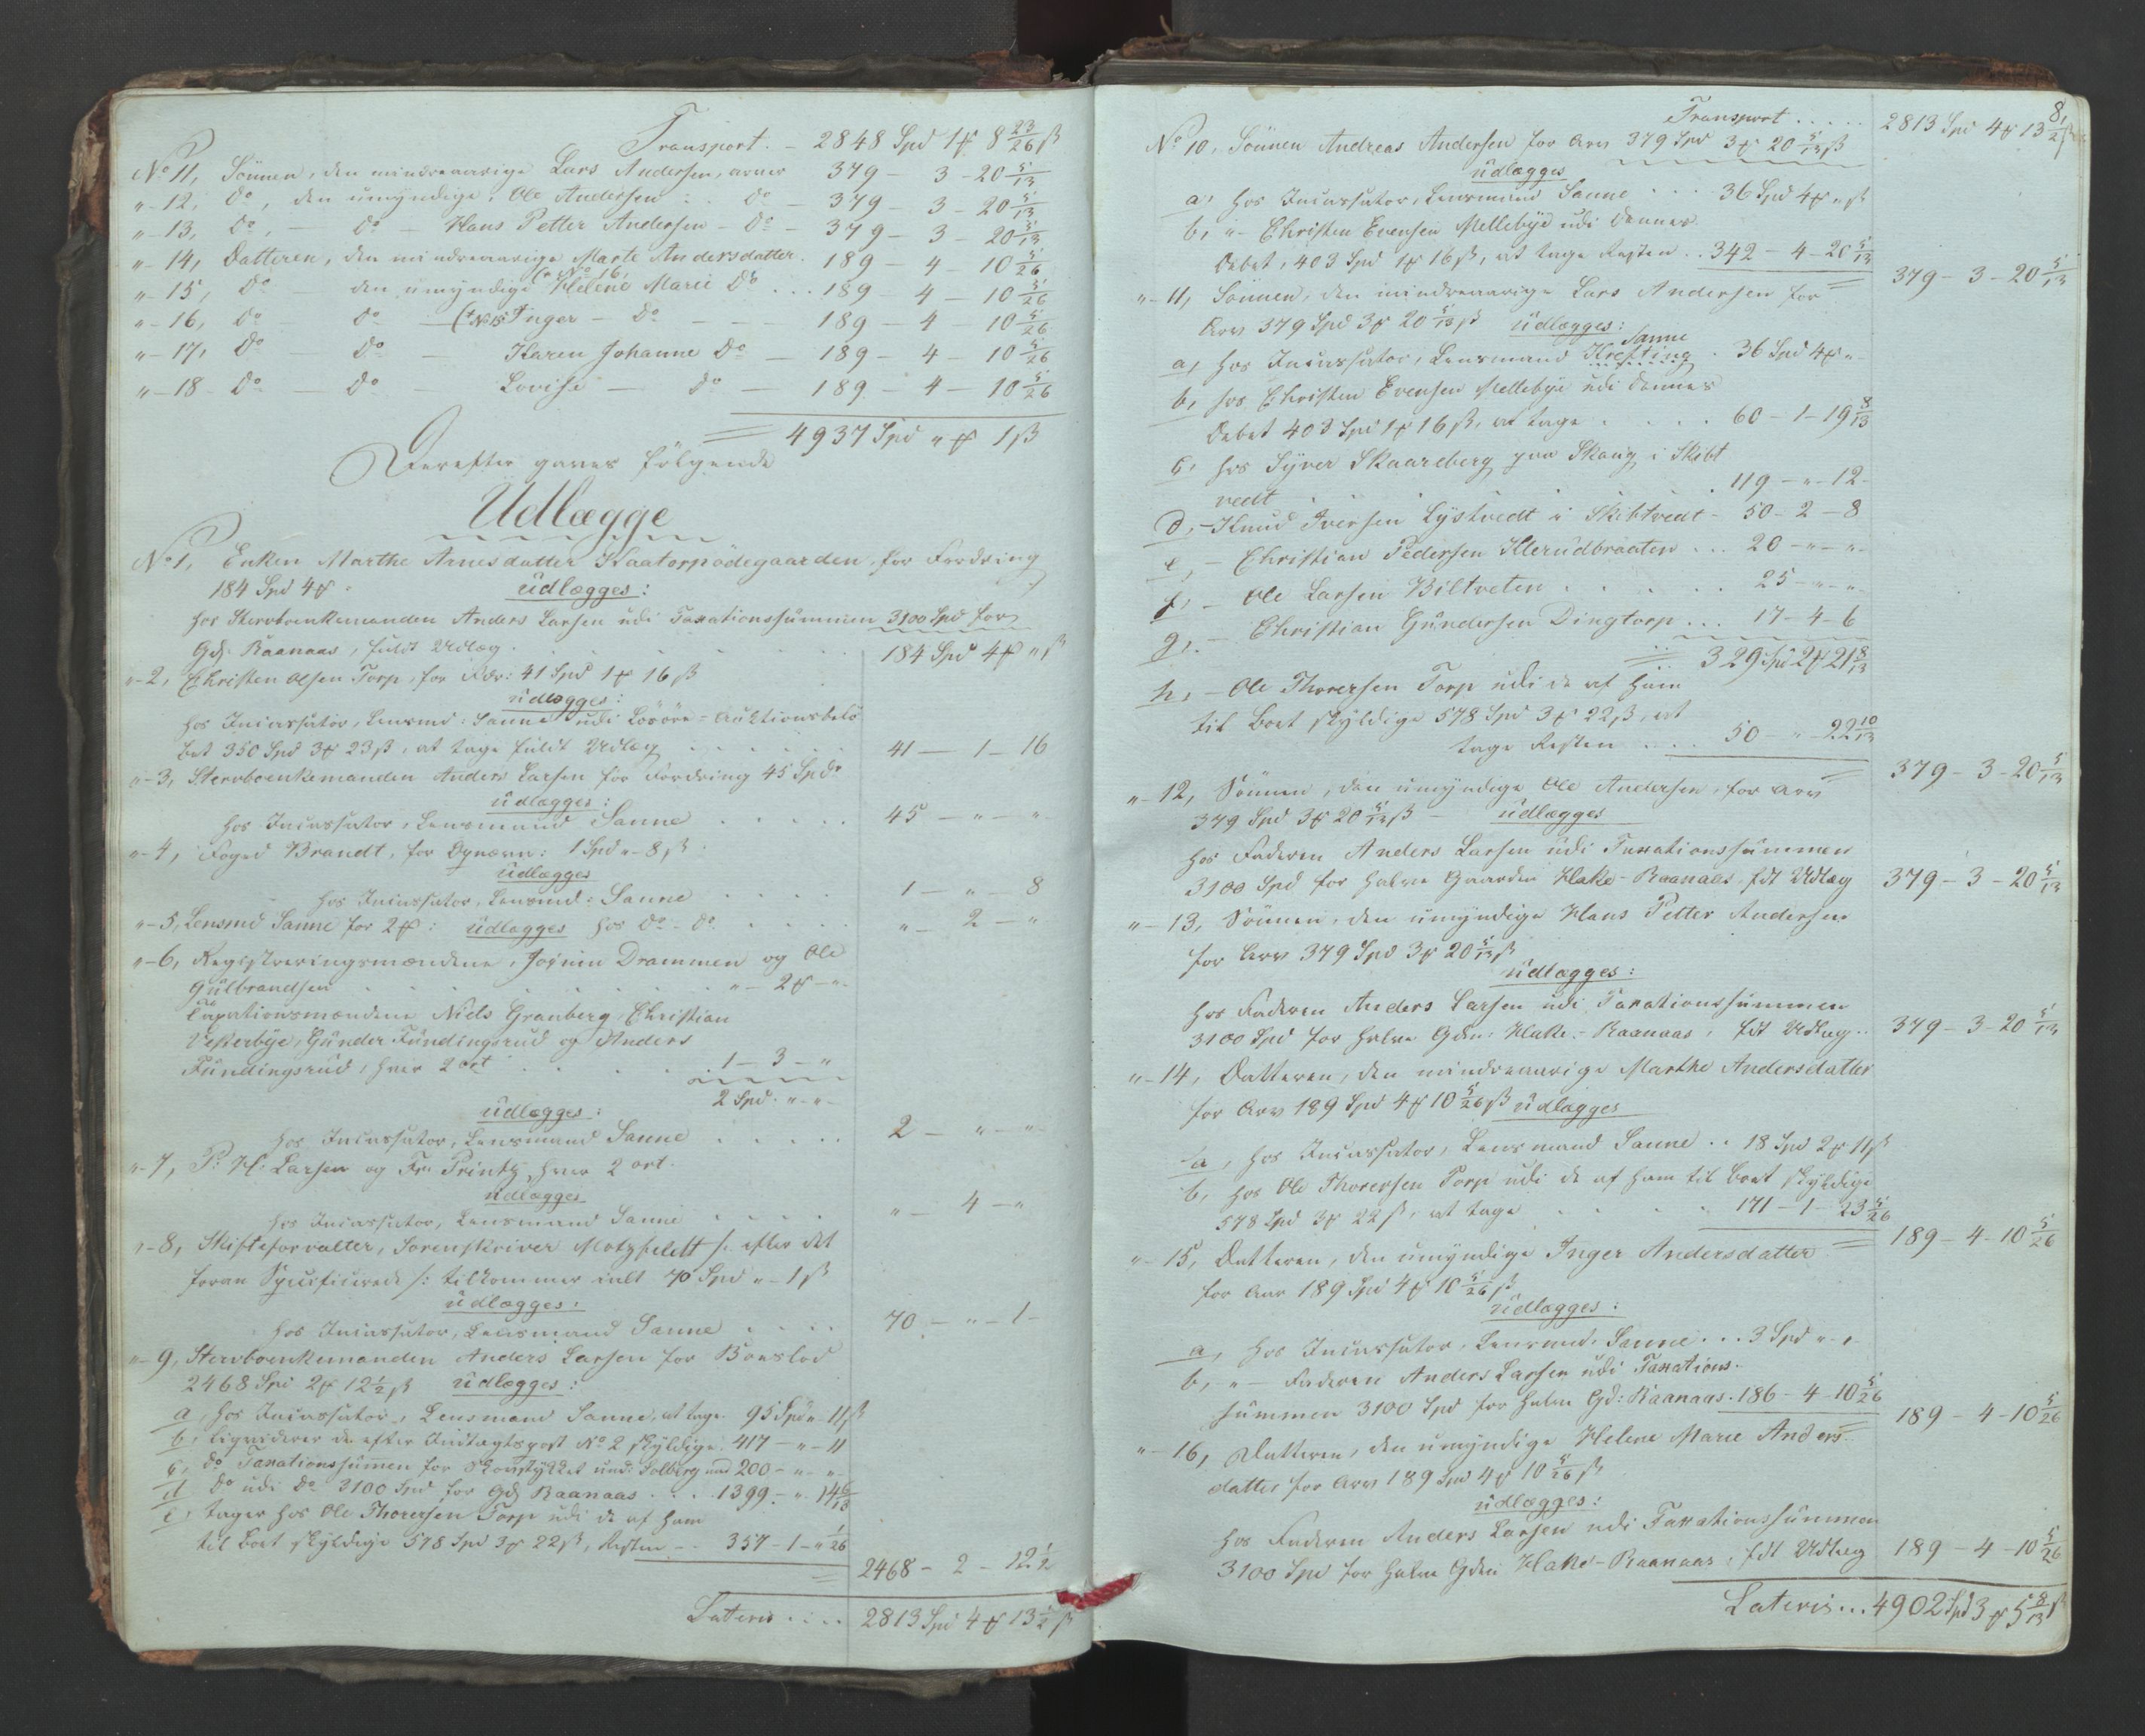 Transport. - 2848 Spd 1 ₰ 8 23/26 ß
No 11, Sönnen, den mindreaarige Lars Andersen, arver 379 - 3 - 20 5/13
" - 12, Do, den umyndige, Ole Andersen .. Do - 379 - 3 - 20 5/13
" - 13, Do, - Do - Hans Petter Andersen - Do - 379 - 3 - 20 5/13
" - 14, Datteren, den mindreaarige Marte Andersdatter. 189 - 4 - 10 5/26
" - 15, Do - den umyndige (+ No 16, Helene Marie Do ... 189 - 4 - 10 5/26
" - 16, Do - Do - (+ No 15 Inger - Do - - - 189 - 4 - 10 5/26
" - 17, Do - Do - Karen Johanne Do - 189 - 4 - 10 5/26
" - 18 - Do - Do - Lovise - Do - 189 - 4 - 10 5/26
4937 Spd " ₰ 1 ß
Derefter gaves følgende
Udlægge
No 1, Enken Marthe Arnesdatter Kaatorpødegaarden, for Fordring
184 Spd 4 ₰ - udlægges:
hos Stervboenkemanden Anders Larsen udi Taxationssummen 3100 Spd for
Gd: Raanaas, fuldt Udlæg . . . . . 184 Spd 4 ₰ " ß
" - 2, Christen Olsen Torp, for Fdr: 41 Spd 1 ₰ 16 ß
udlægges:
hos Incassator, Lensmd: Sanne udi Løsöre-Auktionsbelö
bet 350 Spd 3 ₰ 23 ß, at tage fuldt Udlæg . . . . 41 - 1 - 16
" - 3, Stervboenkemanden Anders Larsen for Fordring 45 Spd:
udlægges:
hos Incassator, Lensmand Sanne . . . . 45 - " - "
" - 4, Foged Brandt, for 1 Spd " - 8 ß.
udlægges
hos Incassator, Lensmd: Sanne . . . . 1 - " - 8
" - 5, Lensmd Sanne for 2 ₰: udlægges hos Do - Do . . . . " - 2 - "
" - 6, Registreringsmændene, Drammen og Ole
Gulbrandsen . . . . . . " - 2 ₰ - "
Taxationsmændene Niels Granberg, Christian
Vesterbye, Gunder Fundingsrud og Anders
Fundingsrud, hver 2 ort . . . . 1 - 3 - "
2 Spd. " - " -
udlægges:
hos Incassator, Lensmand Sanne . . . . . 2 - " - "
" - 7, P: H: Larsen og Fr. Printz, hver 2 ort.
udlægges
hos Incassator, Lensmand Sanne . . . . " - 4 - "
" - 8, Skifteforvalter, Sorenskriver Motzfeldt /: efter det
foran Specificerede :/ tilkommer ialt 70 Spd " - 1 ß
udlægges:
hos Incassator, Lensmand Sanne . . . . 70 - " - 1 -
" - 9, Stervboenkemanden Anders Larsen for Boeslod
2468 Spd 2 ₰ 12 1/2 ß udlægges:
a, hos Incassator, Lensmand Sanne, at tage 95 Spd " - 11 ß
b, Liqviderer de efter Indtægtspost No 2 skyldige 417 - " - 11
c, Do Taxationssumen for Skovstykket und: Solberg med 200 - " - "
d, Do udi Do 3100 Spd for Gd Raanaas . . . 1399 - " - 14 6/13
e, tager hos Ole Thoresen Torp udi de af ham
til Boet skyldige 578 Spd 3 ₰ 22 ß, Resten - . 357 - 1 - " 1/26
2468 - 2 - 12 1/2
Lateris . . . . 2813 Spd 4 ₰ 13 1/2 ß
Transport . . . . . 2813 Spd 4 ₰ 13 1/2 ß
No 10, Sönnen Andreas Andersen for Arv 379 Spd 3 ₰ 20 5/13 ß
udlægges
a, hos Incassator, Lensmand Sanne . . . 36 Spd 4 ₰ " ß
b, " - Christen Evensen Mellebye udi dennes
Debet, 403 Spd 1 ₰ 16 ß, at tage Resten . . 342 - 4 - 20 5/13
379 - 3 - 20 5/13
" - 11, Sönnen, den mindreaarige Lars Andersen for
Arv 379 Spd 3 ₰ 20 5/13 ß udlægges:
Sanne
a, hos Incassator, Lensmand Krefting . 36 Spd 4 ₰ "
b, hos Christen Evensen Mellebye udi dennes
Debet 403 Spd 1 ₰ 16 ß, at tage . . . . 60 - 1 - 19 8/13
c, hos Syver Skaareberg paa Skaug i Skibt
vedt . . . . . 119 - " - 12 -
d, - Knud Iversen Lystvedt i Skibtvedt - 50 - 2 - 8
e, - Christian Pedersen Klerudbraaten ... 20 - " - " -
f, - Ole Larsen Biltveten . . . . . . 25 - " - "
g, - Christian Gundersen Dingtorp ... 17 - 4 - 6
329 Spd 2 ₰ 21 8/13
h, - Ole Thoresen Torp udi de af ham
til Boet skyldige 578 Spd 3 ₰ 22 ß, at
tage Resten . . . . 50 - " - 22 10/13
379 - 3 - 20 5/13
" - 12, Sönnen, den umyndige Ole Andersen, for Arv
379 Spd 3 ₰ 20 5/13 ß - udlægges
hos Faderen Anders Larsen udi Taxationssummen
3100 Spd for halve Gaarden Hake-Raanaas, fdt Udlæg 379 - 3 - 20 5/13
" - 13, Sönnen, den umyndige Hans Petter Andersen
for Arv 379 Spd 3 ₰ 20 5/13 ß
udlægges:
hos Faderen Anders Larsen udi Taxationssummen
3100 Spd for halve Gden: Hake-Raanaas, fdt Udlæg .. 379 - 3 - 20 5/13
" - 14, Datteren, den mindreaarige Marthe Andersdatter
for Arv 189 Spd 4 ₰ 10 5/26 ß udlægges
a, hos Incassator, Lensmand Sanne .. 18 Spd 2 ₰ 11 ß
b, hos Ole Thoresen Torp udi de af ham til Boet skyldige
578 Spd 3 ₰ 22 ß, at tage . . . . 171 - 1 - 23 5/26
189 - 4 - 10 5/26
" - 15, Datteren, den umyndige Inger Andersdatter
for Arv 189 Spd 4 ₰ 10 5/26 ß
udlægges:
a, hos Incassator, Lensmd. Sanne . . . 3 Spd " - "
b, " - Faderen Anders Larsen udi Taxations-
summen 3100 Spd for halve Gd: Raanaas . 186 - 4 - 10 5/26
189 - 4 - 10 5/26
" - 16, Datteren, den umyndige Helene Marie Anders-
datter for Arv 189 Spd 4 ₰ 10 5/26 ß
udlægges:
hos Faderen Anders Larsen udi Taxationssummen
3100 Spd for halve Gden Hake-Raanaas, fdt Udlæg 189 - 4 - 10 5/26
Lateris ... 4902 Spd 3 ₰ 5 8/13 ß